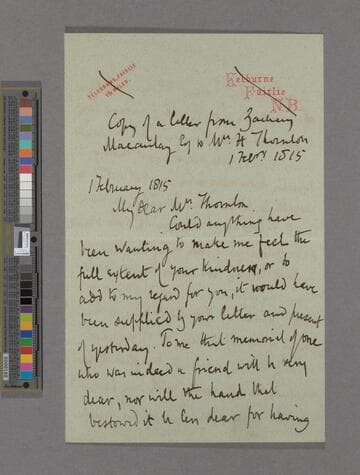 TELEGRAMS, FAIRLIE
Kelburne
Fairlie
N.B.
Copy of a letter from Zachary
Macaulay Esq to Mrs H Thornton
1 Feby 1815
1 February 1815
My dear Mrs Thornton
Could anything have
been wanting to make me feel the
full extent of your kindness, or to
add to my regard for you, it would have
been supplied by your letter and present
of yesterday. To me that memorial of one
who was indeed a friend will be very
dear, nor will the hand that
bestowed it be less dear for having